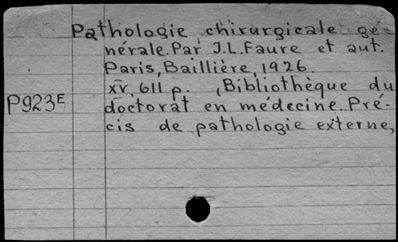 Pathologie chirurgicale gé-
nérale. Par J.L. Faure et aut.
Paris, Baillière, 1926.
XV, 611 p. (Bibliothèque du
P923E doctorat en médecine. Pré-
cis de pathologie externe,